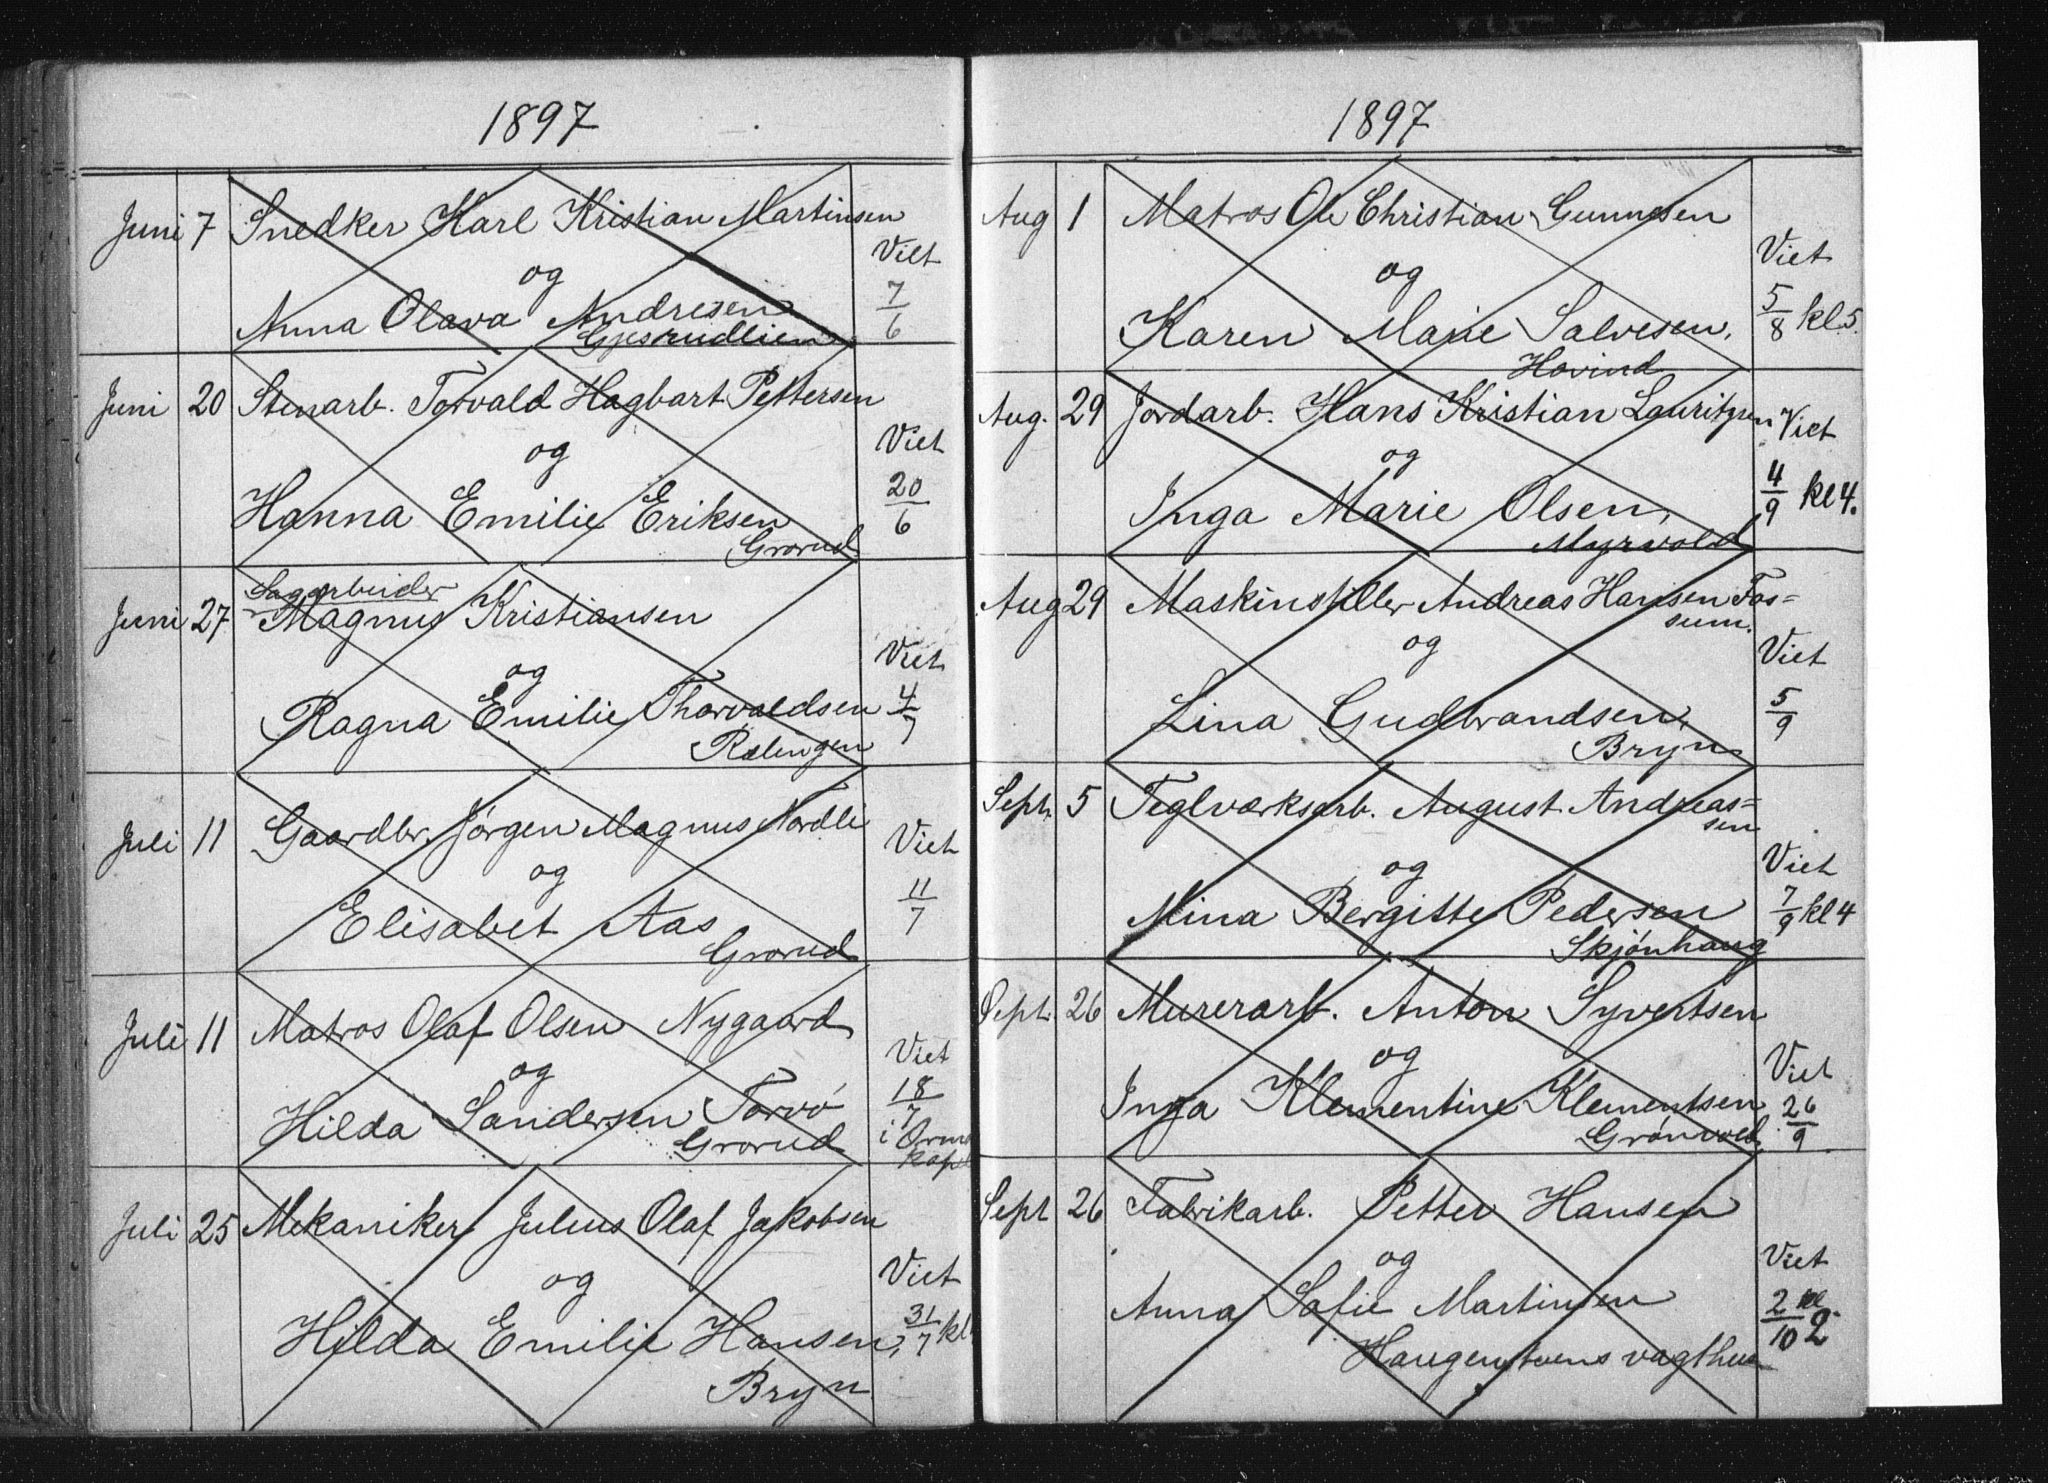 1897
Juni 7 Snedker Karl Kristian Martinsen
og
Viet 7/6
Anna Olava Andresen
Gjesrudlien
Juni 20 Stenarb. Torvald Hagbart Pettersen
og
Viet 20/6
Hanna Emilie Eriksen
Grorud
Sagarbeider
Juni 27 Magnus Kristiansen
og
Viet 4/7
Ragna Emilie Thorvaldsen
Rælingen
Juli 11 Gaardbr. Jørgen Magnus Nordli
og
Viet 11/7
Elisabet Aas
Grorud
Juli 11 Matros Olaf Olsen Nygaard
og
Viet 18/7
Hilda Sandersen Torvø
Grorud
i Orms
kapel
Juli 25 Mekaniker Julius Olaf Jakobsen
og
Viet 31/7 kl
Hilda Emilie Hansen,
Bryn
1897
Aug 1 Matros Ole Christian Gunnesen
og
Viet 5/8 kl 5.
Karen Marie Salvesen,
Hovind
Aug. 29 Jordarb. Hans Kristian Lauritzen
og
Viet 4/9 kl 4.
Inga Marie Olsen,
Myrvold
Aug 29 Maskinstiller Andreas Hansen Fos=
sum.
og
Viet 5/9
Lina Gudbrandsen,
Bryn
Sept. 5 Teglværksarb. August Andreas=
sen
og
Viet 7/9 kl 4
Mina Bergitte Pedersen
Skjønhaug
Sept. 26 Murerarb. Anton Syvertsen
og
Viet 26/9
Inga Klementine Klementsen
Grønvold
Sept 26 Fabrikarb. Petter Hansen
og
Viet 2/10 kl 2
Anna Sofie Martinsen
Haugenstuens vagthus